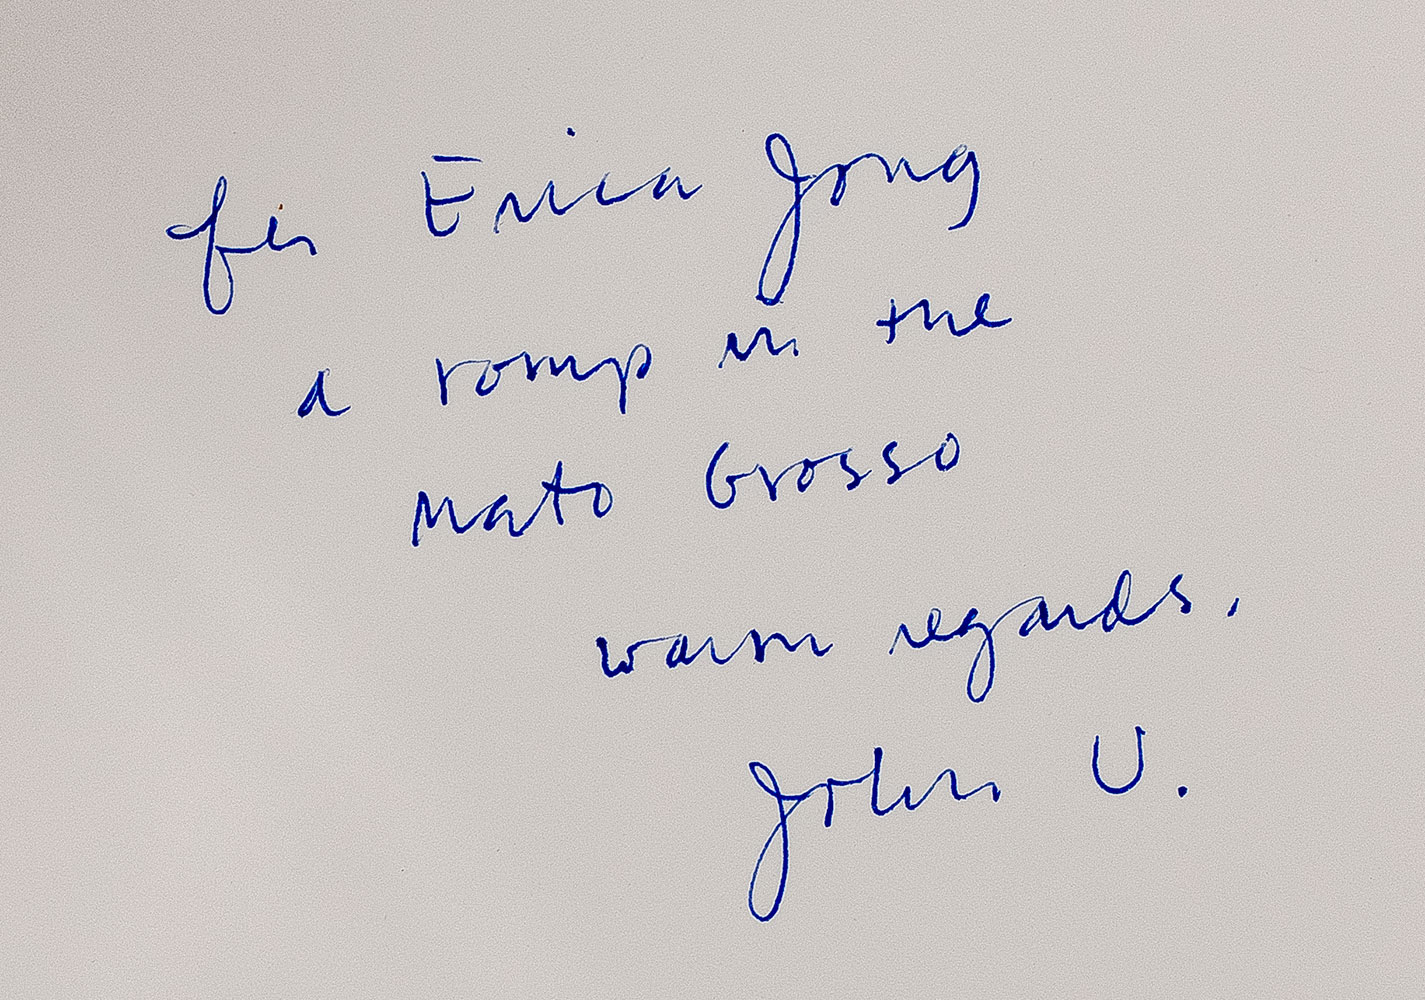 for Erica Jong
a romp in the
Mato Grosso
warm regards,
John U.